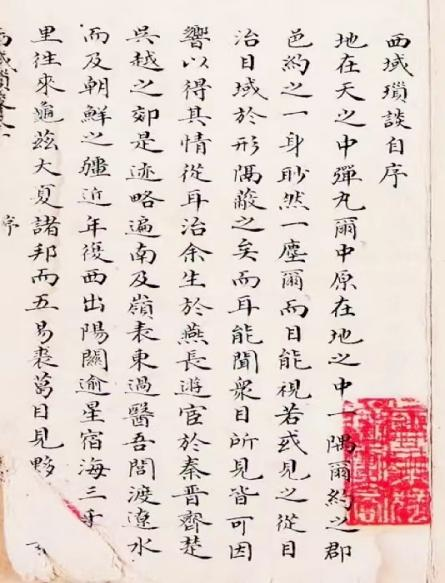 西域瑣談自序
地在天之中彈丸爾中原在地之中一隅爾約之郡
邑約之一身眇然一塵爾而目能視若或見之從目
治目域於形隅蔽之矣而耳能聞衆目所見皆可因
響以得其情從耳治余生於燕長遊宦於秦晉齊楚
吳越之郊是迹略遍南及嶺表東過醫吾閭渡遼水
而及朝鮮之疆近年復西出陽關逾星宿海三
里往來龜茲大夏諸邦而五易裘葛目見夥
序